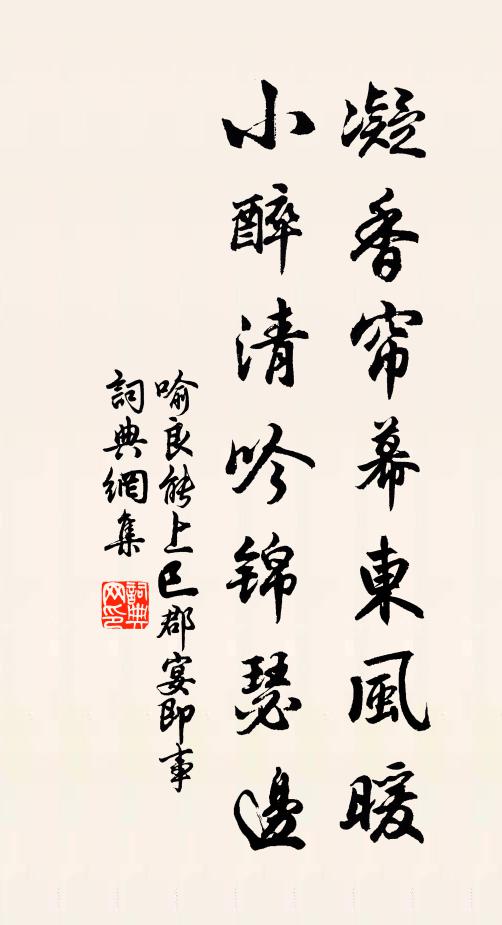 凝香帘幕東風暖
小醉清吟锦瑟邊
喻良能上巳郡宴即事
詞典網集
詞典网印